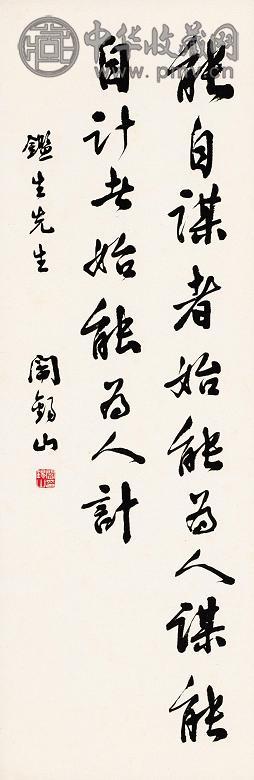 能自谋者始能为人谋能
自计者始能为人計
鑑生先生
阎錫山
中华收藏网